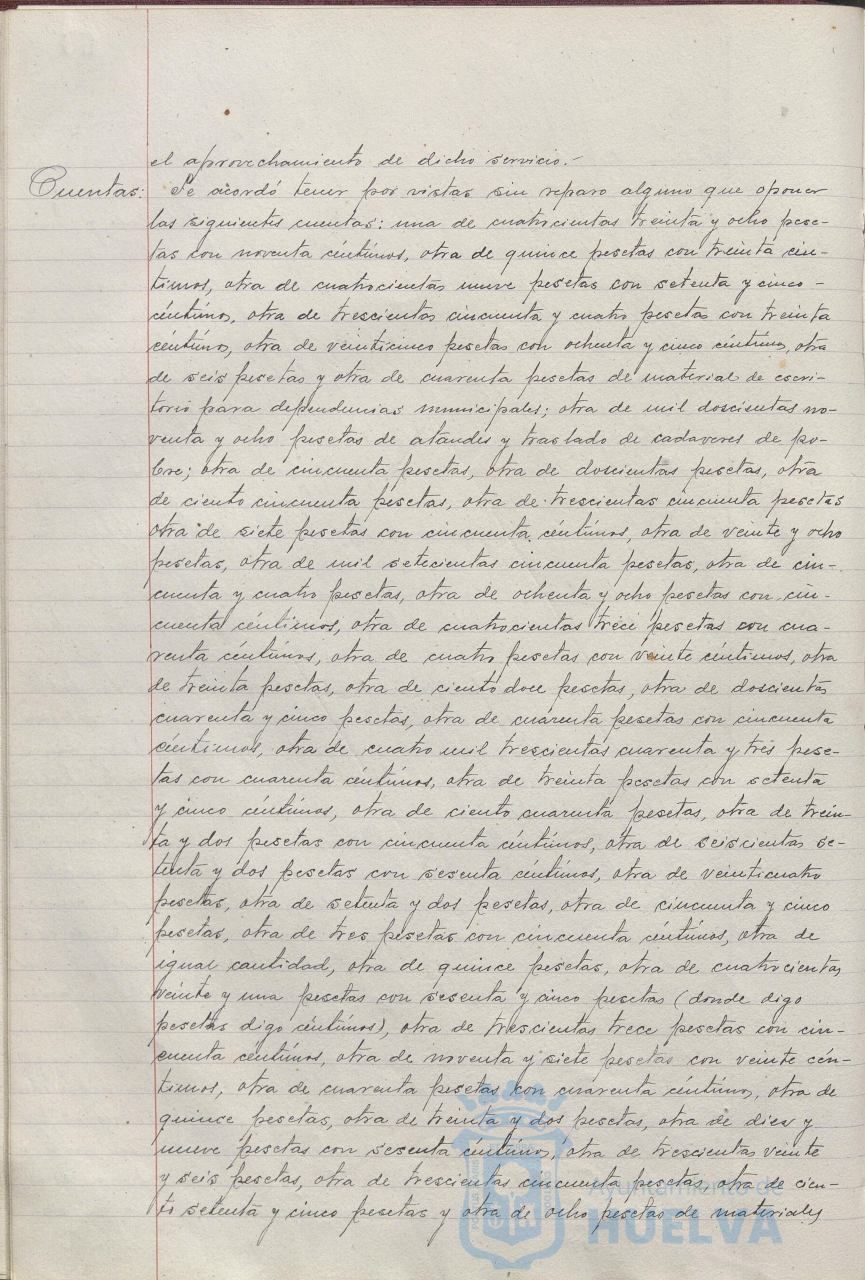 el aprovechamiento de dicho servicio.-
Cuentas: Se acordó tener por vistas sin reparo alguno que oponer
las siguientes cuentas: una de cuatrocientas treinta y ocho pese-
tas con noventa céntimos, otra de quince pesetas con treinta cén-
timos, otra de cuatrocientas nueve pesetas con setenta y cinco-
céntimos, otra de trescientas cincuenta y cuatro pesetas con treinta
céntimos, otra de veinticinco pesetas con ochenta y cinco céntimos, otra
de seis pesetas y otra de cuarenta pesetas de material de escri-
torio para dependencias municipales; otra de mil doscientas no-
venta y ocho pesetas de ataudes y traslado de cadaveres de po-
bre; otra de cincuenta pesetas, otra de doscientas pesetas, otra
de ciento cincuenta pesetas, otra de trescientas cincuenta pesetas
otra de siete pesetas con cincuenta céntimos, otra de veinte y ocho
pesetas, otra de mil setecientas cincuenta pesetas, otra de cin-
cuenta y cuatro pesetas, otra de ochenta y ocho pesetas con cin-
cuenta céntimos, otra de cuatrocientas trece pesetas con cua-
renta céntimos, otra de cuatro pesetas con veinte céntimos, otra
de treinta pesetas, otra de ciento doce pesetas, otra de doscientas
cuarenta y cinco pesetas, otra de cuarenta pesetas con cincuenta
céntimos, otra de cuatro mil trescientas cuarenta y tres pese-
tas con cuarenta céntimos, otra de treinta pesetas con setenta
y cinco céntimos, otra de ciento cuarenta pesetas, otra de trein-
ta y dos pesetas con cincuenta céntimos, otra de seiscientas se-
tenta y dos pesetas con sesenta céntimos, otra de veinticuatro
pesetas, otra de setenta y dos pesetas, otra de cincuenta y cinco
pesetas, otra de tres pesetas con cincuenta céntimos, otra de
igual cantidad, otra de quince pesetas, otra de cuatrocientas
veinte y una pesetas con sesenta y cinco pesetas (donde digo
pesetas digo céntimos), otra de trescientas trece pesetas con cin-
cuenta céntimos, otra de noventa y siete pesetas con veinte cén-
timos, otra de cuarenta pesetas con cuarenta céntimos, otra de
quince pesetas, otra de treinta y dos pesetas, otra de diez y
nueve pesetas con sesenta céntimos, otra de trescientas veinte
y seis pesetas, otra de trescientas cincuenta pesetas, otra de cien-
to setenta y cinco pesetas y otra de ocho pesetas de materiales
Ayuntamiento de
HUELVA